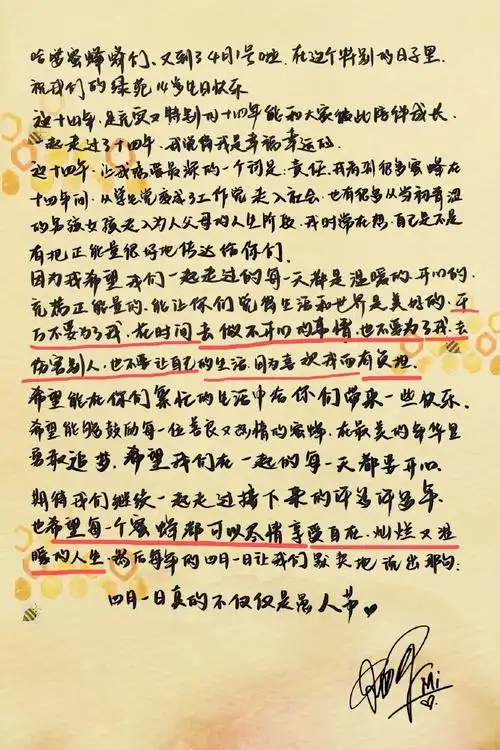 哈喽蜜蜂蜂们、又到了4月1号啦.在这个特别的日子里
祝我们的绿苑14岁生日快乐
这十四年,是充实又特别的十四年能和大家彼此陪伴成长.
一起走过了十四年.我觉得我是幸福幸运的.
这十四年.让我感受最深的一个词是:责任.我看到很多蜜蜂在
十四年间.从学生党变成了工作党走入社会.也有很多从当初青涩
的男孩女孩走入为人父母的人生阶段.我时常在想.自己是不是
有把正能量很好地传达给你们.
因为我希望我们一起走过的每一天都是温暖的.开心的.
充满正能量的.能让你们觉得生活和世界是美好的.千
万不要为了我.花时间去做不开心的事情.也不要为了我去
伤害别人,也不要让自己的生活.因为喜欢我而有负担.
希望能在你们繁忙的生活中给你们带来一些快乐.
希望能够鼓励每一位善良又热情的蜜蜂.在最美的年华里
勇敢追梦.希望我们在一起的每一天都要开心.
期待我们继续一起走过接下来的许多许多年.
也希望每一个蜜蜂都可以尽情享受自在.灿烂又温
暖的人生.然后每年的四月一日让我们默契地说出那句:
四月一日真的不仅仅是愚人节
Mi